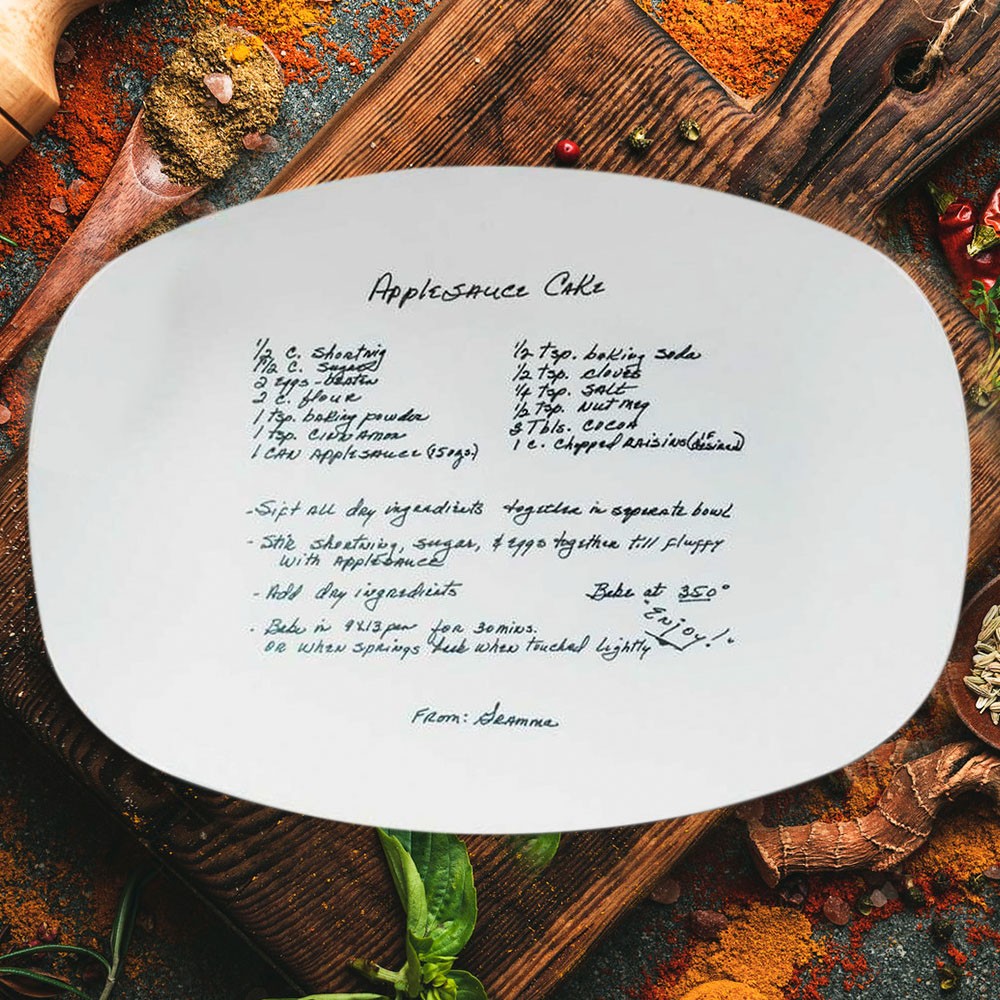 Applesauce Cake
1/2 c. shortnig
1 1/2 c. sugar
2 eggs - beaten
2 c. flour
1 tsp. baking powder
1 tsp. cinnamon
1 can applesauce (15 ozs.)
1/2 tsp. baking soda
1/2 tsp. cloves
1/4 tsp. salt
1/2 tsp. nutmeg
3 Tbls. cocoa
1 c. chopped raisins (if desired)
- Sift all dry ingredients together in seperate bowl
- Stir shortning, sugar, & eggs together till fluffy
with applesauce
- Add dry ingredients
Bake at 350°
- Bake in 9x13 pan for 30 mins.
or when springs back when touched lightly
"Enjoy!"
From: Gramma